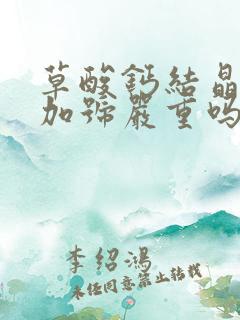 草酸鈣結晶
加號嚴重嗎
李紹鴻
未任同意禁止转载